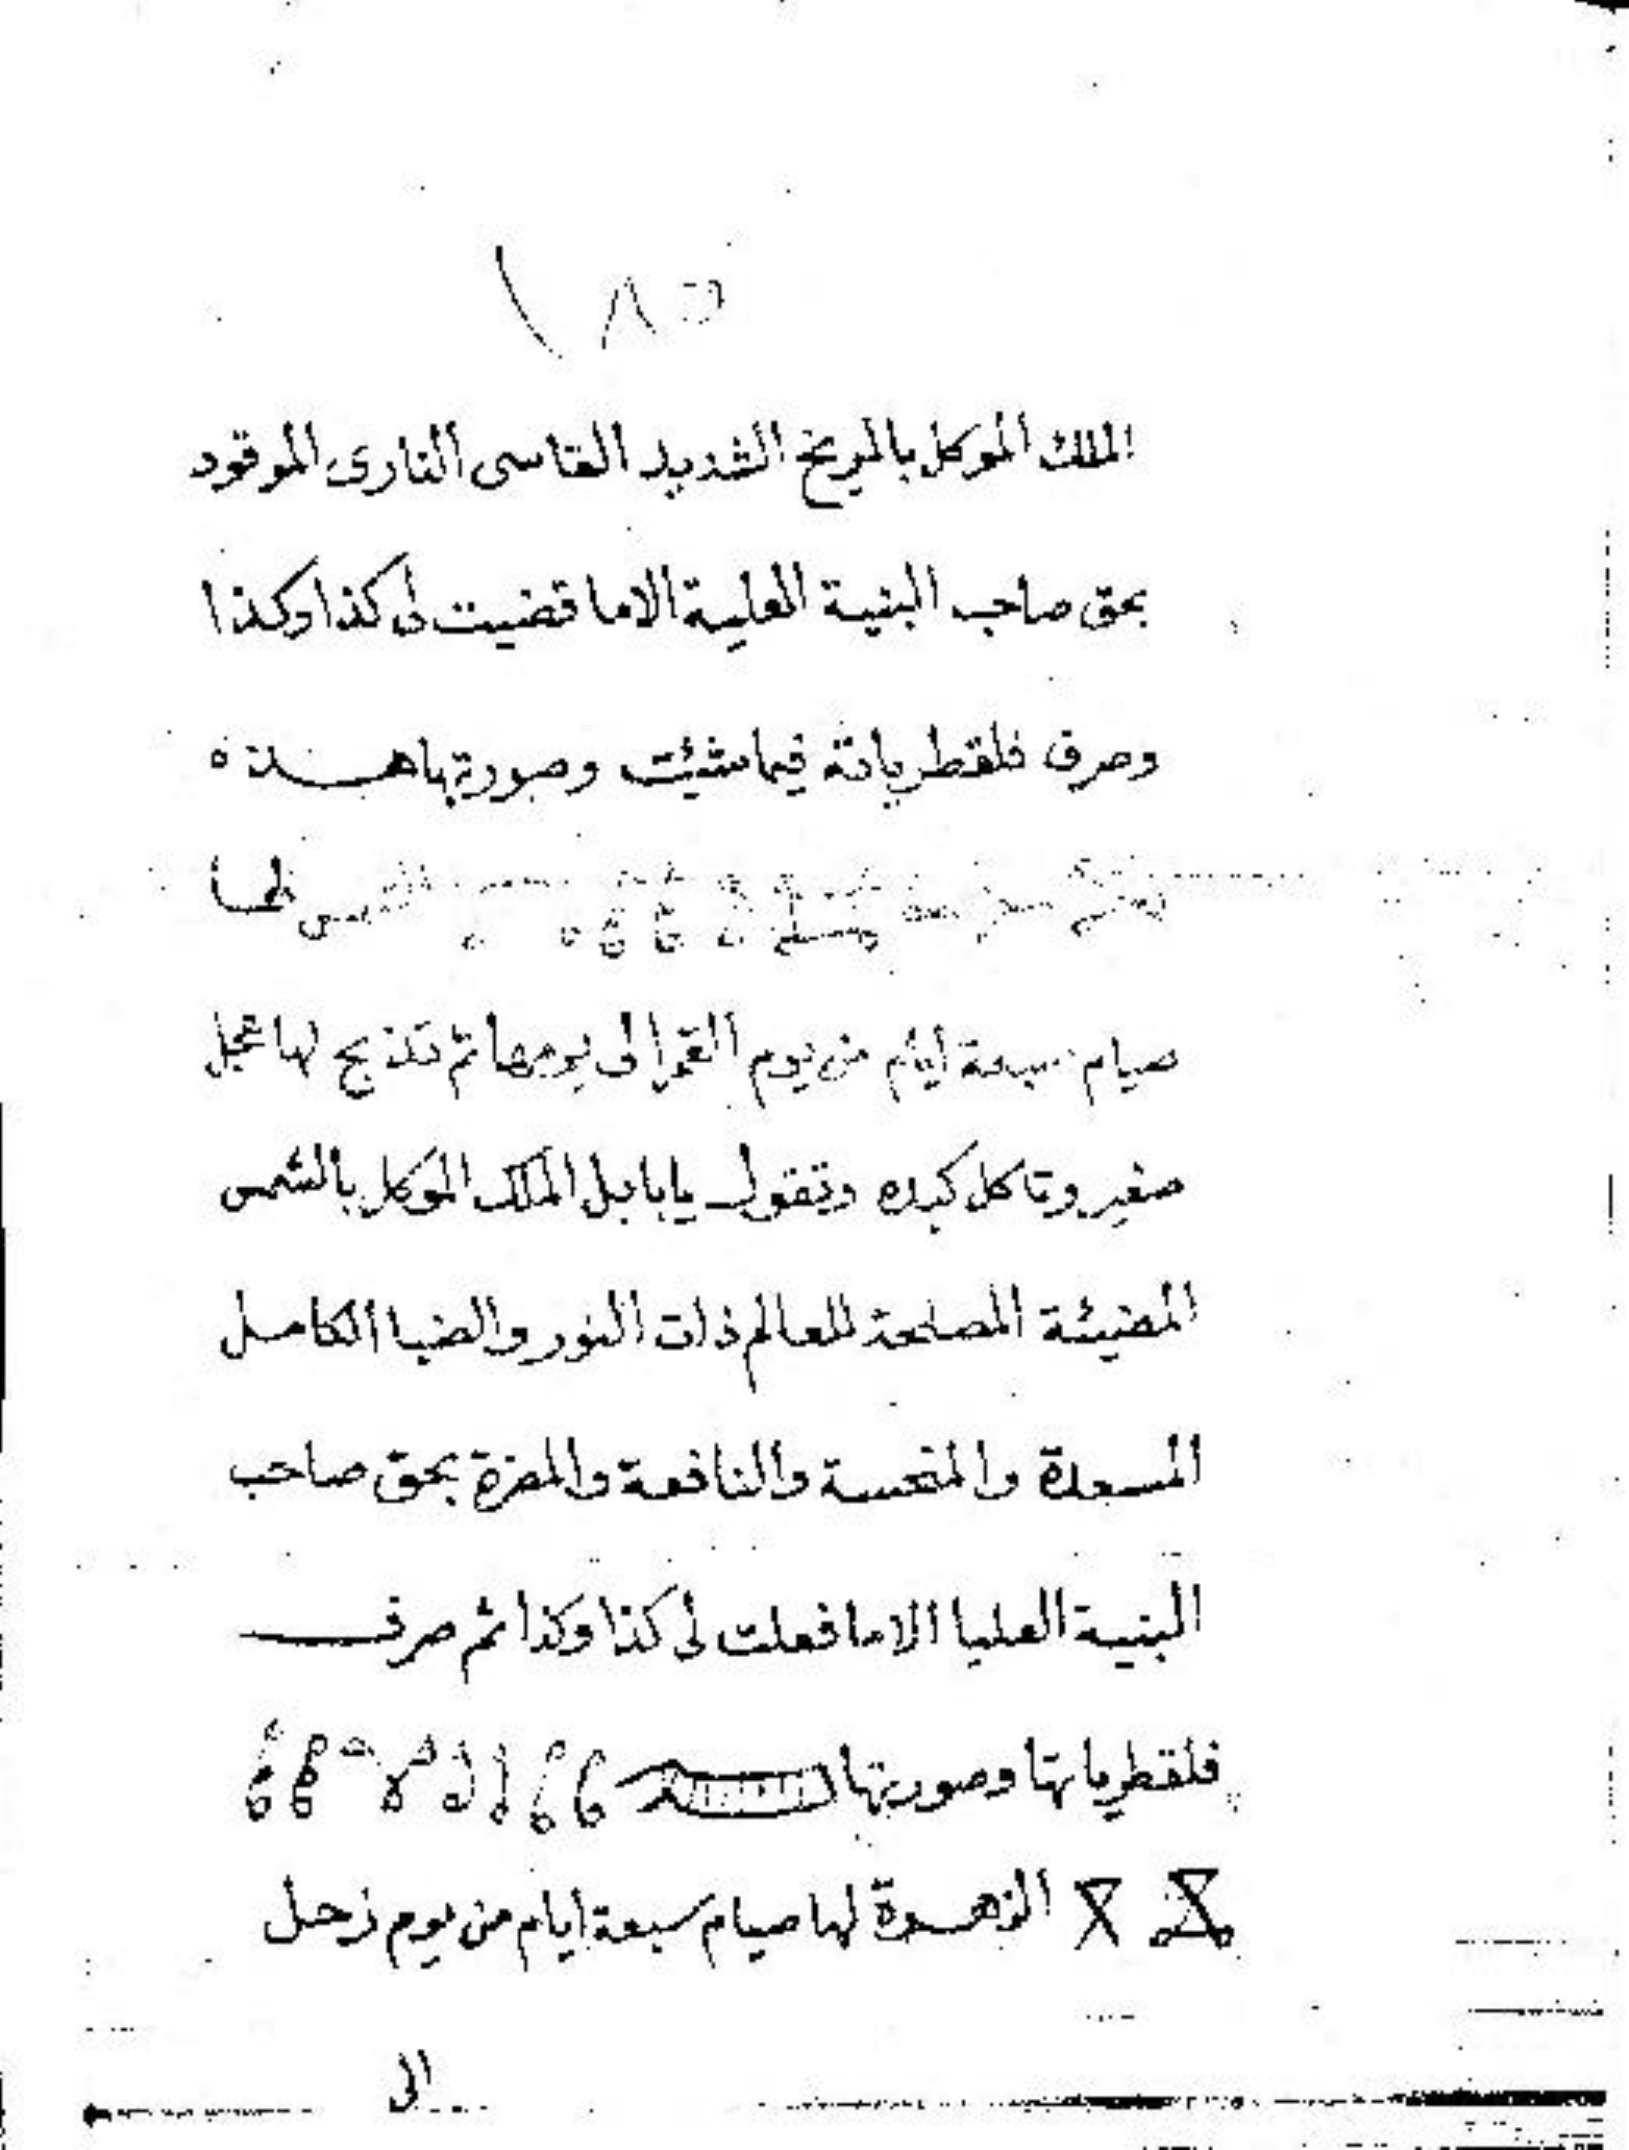 ١٨٥
الملك الموكل بالمريخ الشديد القاسى النارى الموقود
بحق صاحب البنية العلية الاما قضيت لى كذا وكذا
وصرف فلقطرياتة فيما شئت وصورتها هـــذه
الشمس لها
صيام سبعة ايام من يوم القمر الى يومها ثم تذبح لها عجل
صغير وتاكل كبده وتقول يا بابل الملك الموكل بالشمس
المضيئة المصلحة للعالم ذات النور والضيا الكامل
المسعدة والمنحسة والنافعة والمضرة بحق صاحب
البنية العليا الاما فعلت لى كذا وكذا ثم صرف
فلقطرياتها وصورتها
الزهــرة لها صيام سبعة ايام من يوم زحل
الى